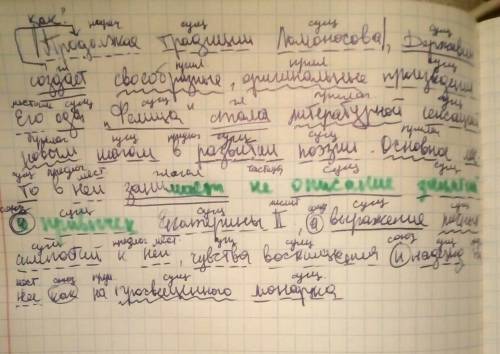 как?
нареч сущ сущ сущ
|Продолжая традиции Ломоносова|, Державин
гл прил прил сущ
создаёт своеобразные, оригинальные произведения
местоим сущ сущ гл прилаг сущ
Его ода "Фелица" стала литературной сенсацией
прилаг сущ предлог сущ сущ прилаг
новым шагом в развитии поэзии. Основное ме
сущ предлог мест глагол частица сущ сущ
то в ней занимает не описание занятий
союз сущ сущ союз сущ
и привычек Екатерины II, а выражение
сущ предлог мест сущ сущ союз сущ
к ней, чувства восхищения и надежд
мест союз сущ
нее как на просвещенного монарха